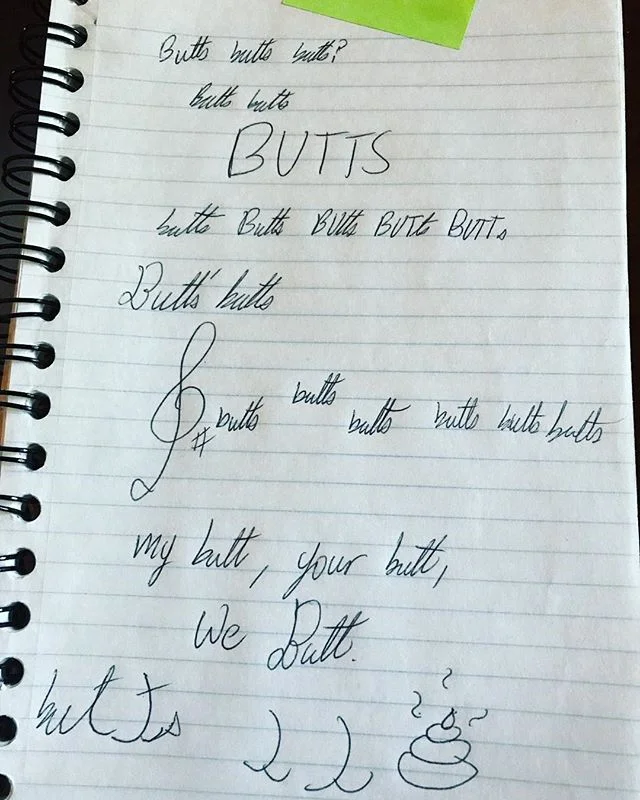 Butts butts butts?
Butts butts
BUTTS
butts Butts BUtts BUTts BUTTs
Butts' butts
butts butts butts butts butts butts
my butt, your butt,
We Butt.
butts